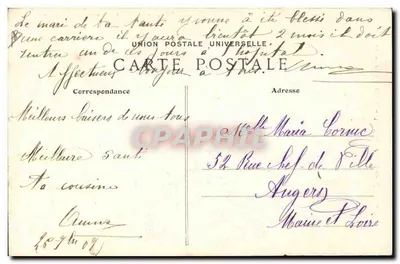 Le mari de ta tante Yvonne a été blessé dans
une carrière il y aura bientôt 2 mois il doit
rentrer un de ces jours à l'hopital.
UNION POSTALE UNIVERSELLE
Affectueux bonjour à tous.
CARTE POSTALE
Correspondance
Adresse
Meilleurs baisers de nous tous
Meilleure santé
ta cousine
CPARAMA
Melle Maria Cornic
52 Rue Chef de Ville
Angers
Maine et Loire